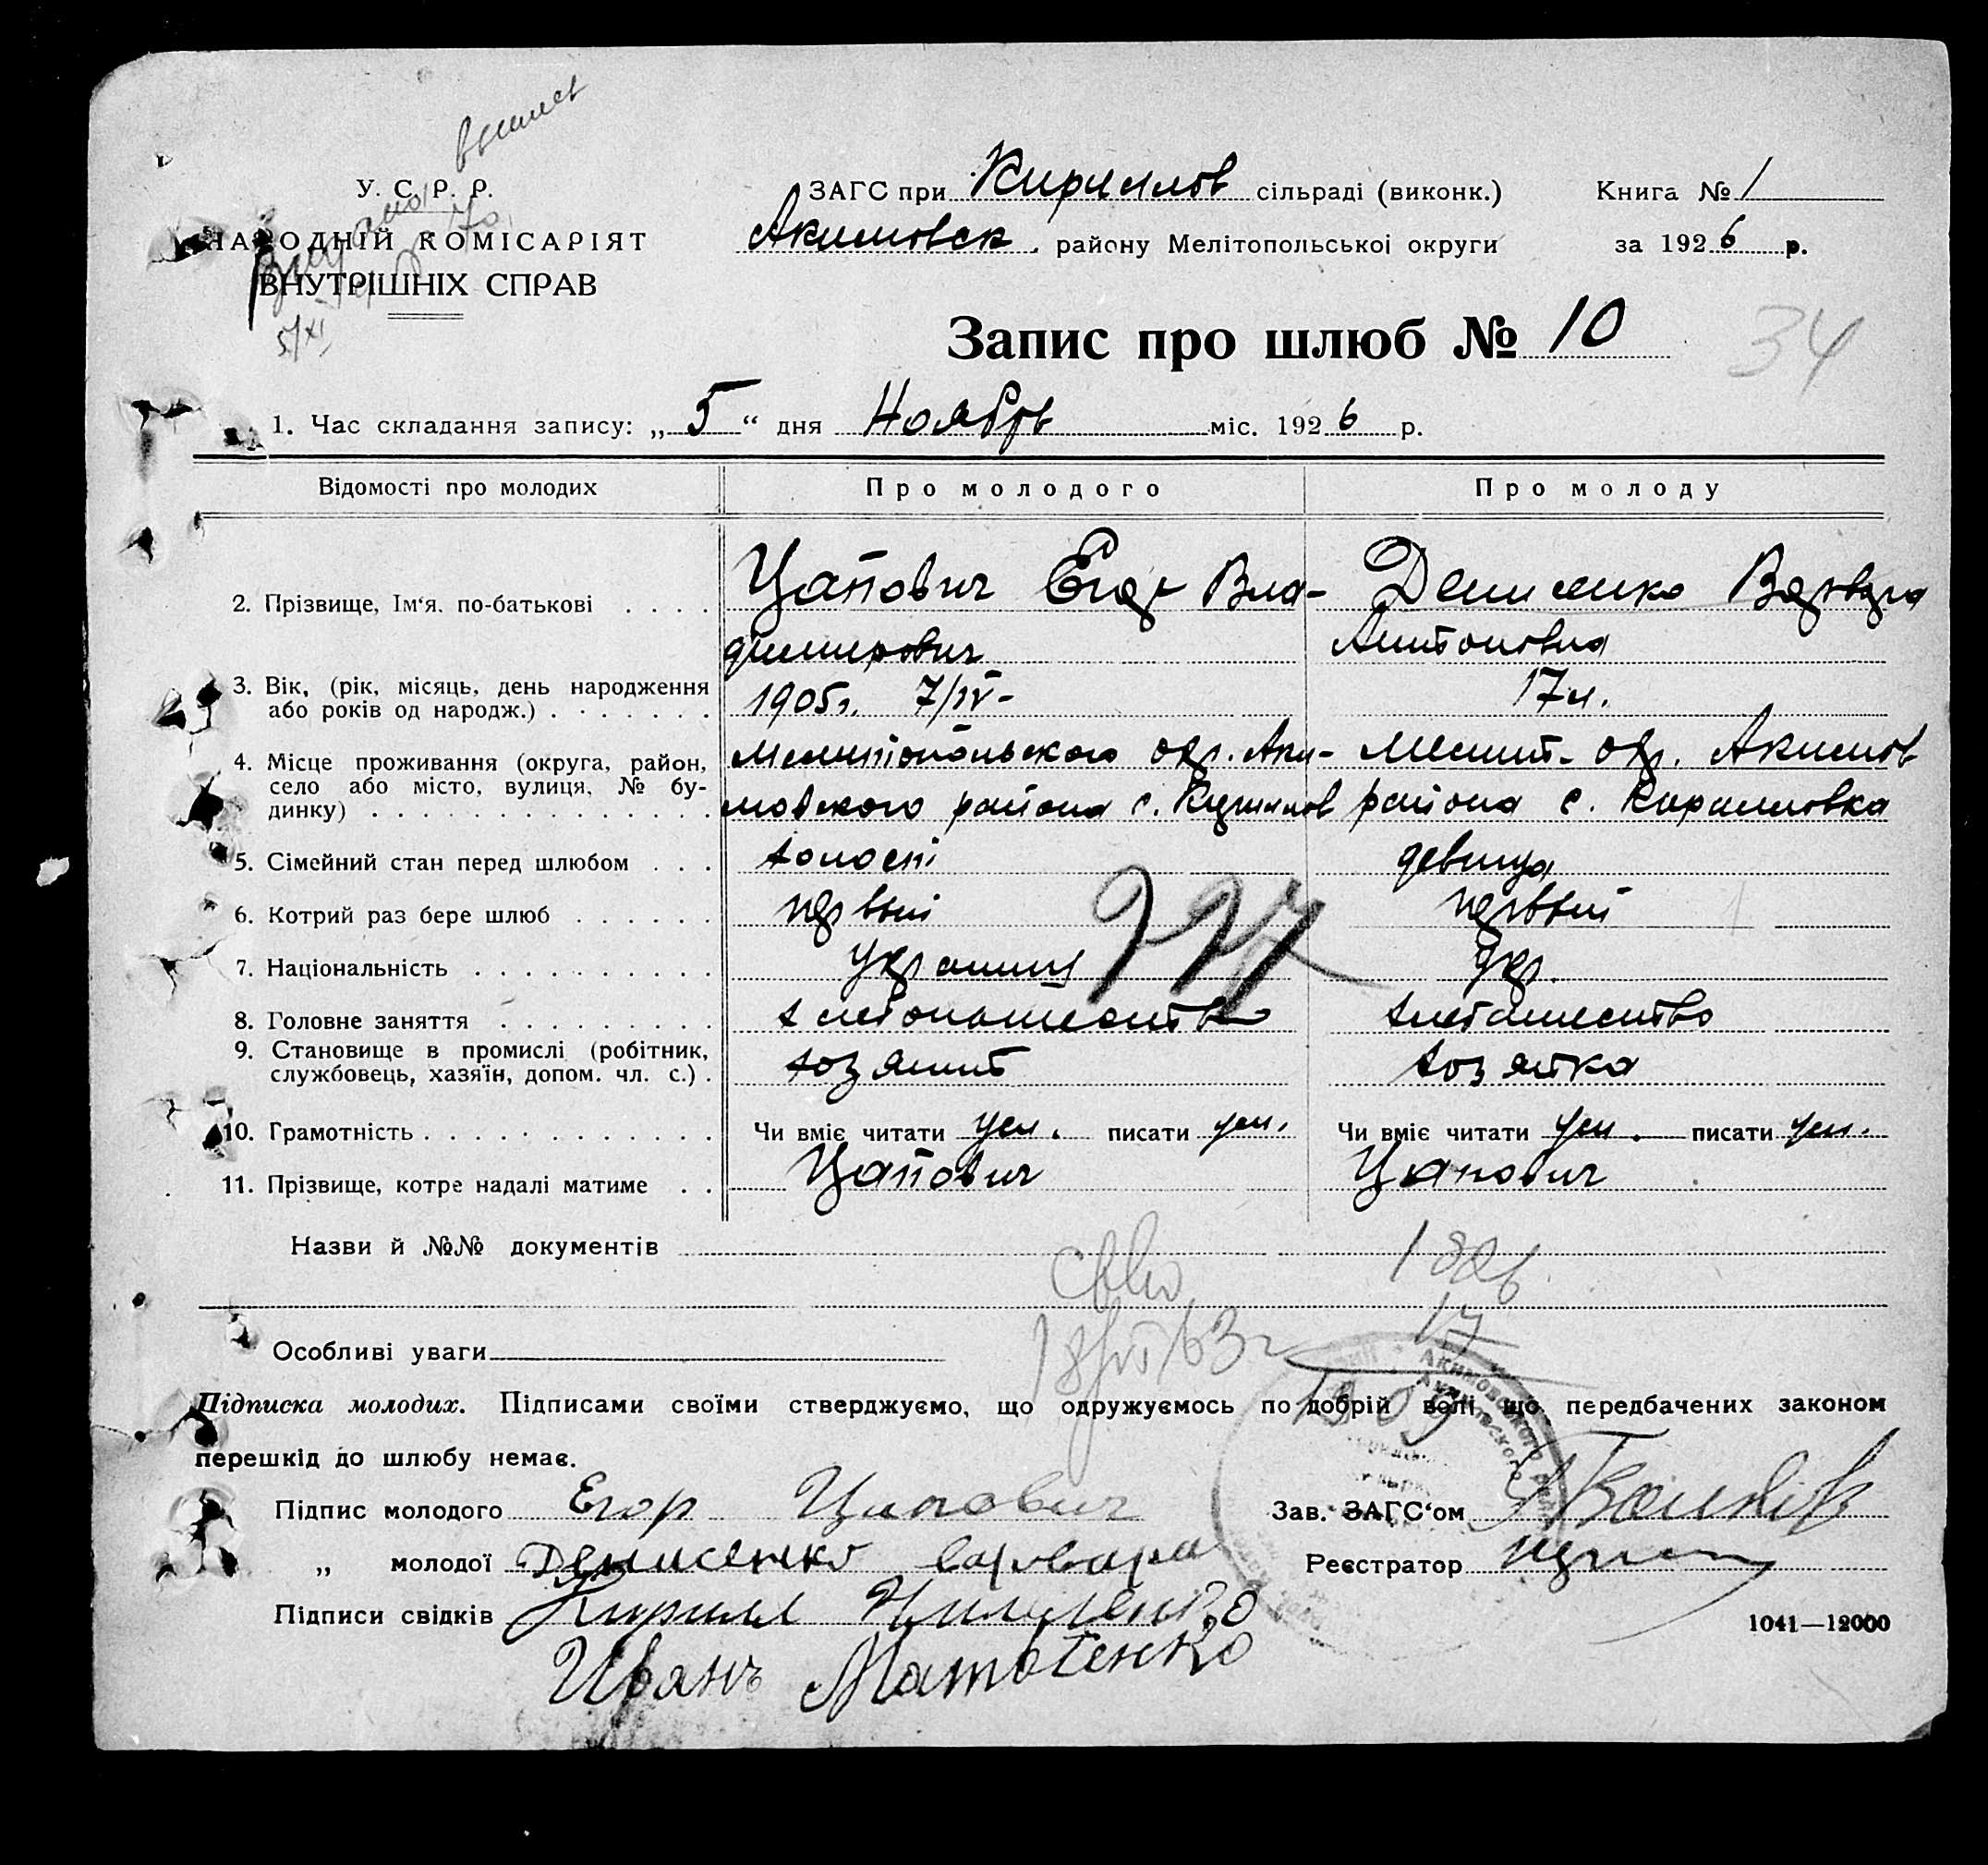 У. С. Р. Р.
НАРОДНІЙ КОМІСАРІЯТ
ВНУТРІШНІХ СПРАВ
5/XI
ЗАГС при Кириллов сільраді (виконк.) Книга № 1
Акимовск. району Мелітопольської округи за 1926 р.
Запис про шлюб № 10
34
1. Час складання запису: „5“ дня Ноябрь міс. 1926 р.
Відомості про молодих Про молодого Про молоду
2. Прізвище, Ім‘я. по-батькові . . . . Цапович Егор Вла- Денисенко Варвара
димирович Антоновна
3. Вік, (рік, місяць, день народження
або років од народж.) . . . . . . . 1905г. 7/IV- 17 л.
4. Місце проживання (округа, район, Мелитопольского окр. Аки- Мелит. окр. Акимов
село або місто, вулиця, № бу-
динку) . . . . . . . . . . . . . . мовского района с. Кирилов района с. Кириловка
5. Сімейний стан перед шлюбом . . . холост девица
6. Котрий раз бере шлюб . . . . . . первый первый
7. Національність . . . . . . . . . . украинец укр.
8. Головне заняття . . . . . . . . . хлебопашество хлебопашество
9. Становище в промислі (робітник,
службовець, хазяїн, допом. чл. с.) . хозяин хозяйка
10. Грамотність . . . . . . . . . . . . Чи вміє читати ум. писати ум. Чи вміє читати ум. писати ум.
11. Прізвище, котре надалі матиме . . Цапович Цапович
Назви й №№ документів
1926
17
1909
Особливі уваги
Підписка молодих. Підписами своїми стверджуємо, що одружуємось по добрій волі що передбачених законом
перешкід до шлюбу немає.
Підпис молодого Егор Цапович Зав. ЗАГС‘ом
„ молодої Денисенко варвара Реєстратор
Підписи свідків Кирилл
1041—12000
Иванъ Матвеенко